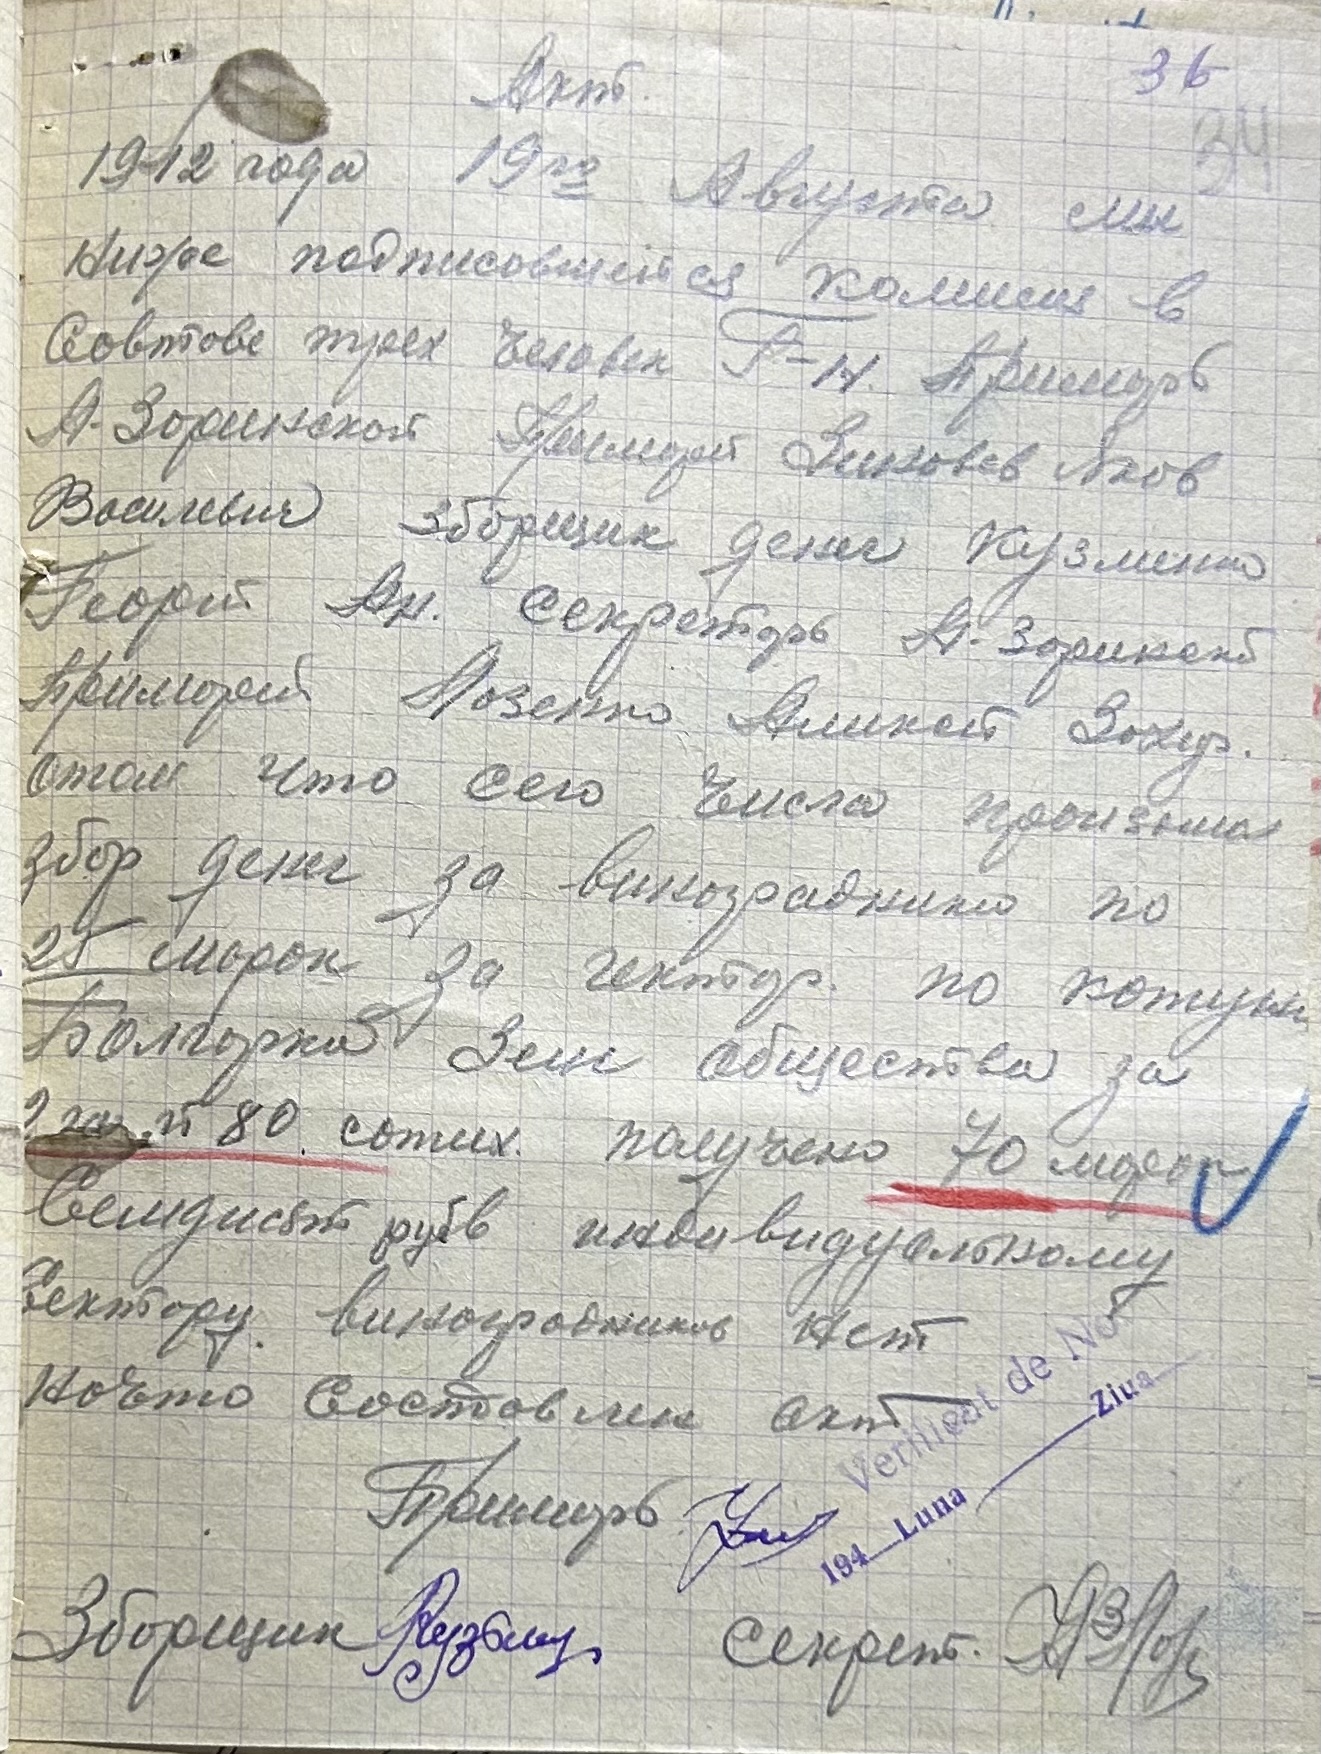 36
34
Акт.
1942 года 19го Августа мы
Ниже подписовшейся комисия в
Совтове трех человек Г-н. Примарь
А-Зоринской Примарей Зиновев Яков
Василевич зборщик денег Кузменко
Георгй Ан. секретарь А-Зоринской
Примарей Лозенко Аликсей Захар.
отом что сего числа произвели
збор денег за виноградники по
25 марок за гектар. по
Болгарка Зем общества за
2 га. и 80. сотих. получено 70 марок
Семдисят рубв индивидуальному
Сектору. виноградников Нет
Начто Составлен акт
Примарь
Verificat de Not
194 Luna Ziua
Зборщик Кузьмен секрет.